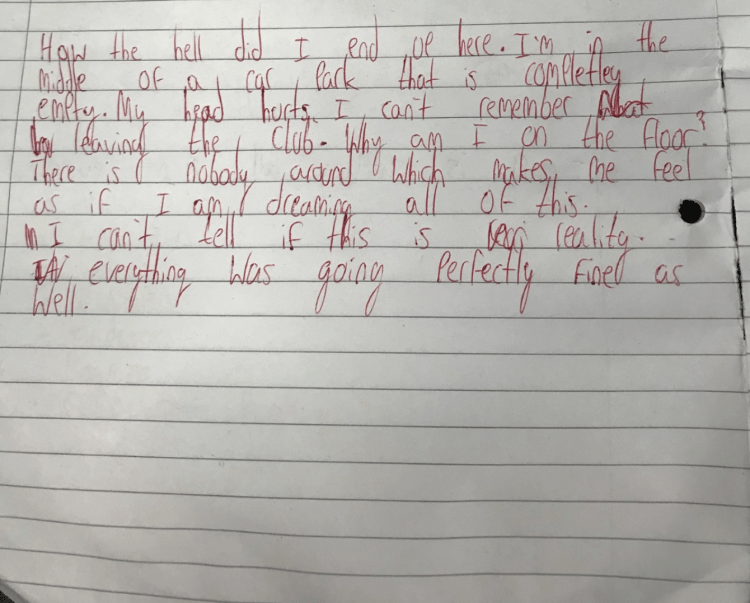 How the hell did I end up here. I'm in the
middle of a car park that is completley
empty. My head hurts. I can't remember
leaving the club. Why am I on the floor?
There is nobody around which makes me feel
as if I am dreaming all of this.
I can't tell if this is reality.
everything was going perfectly fine as
well.